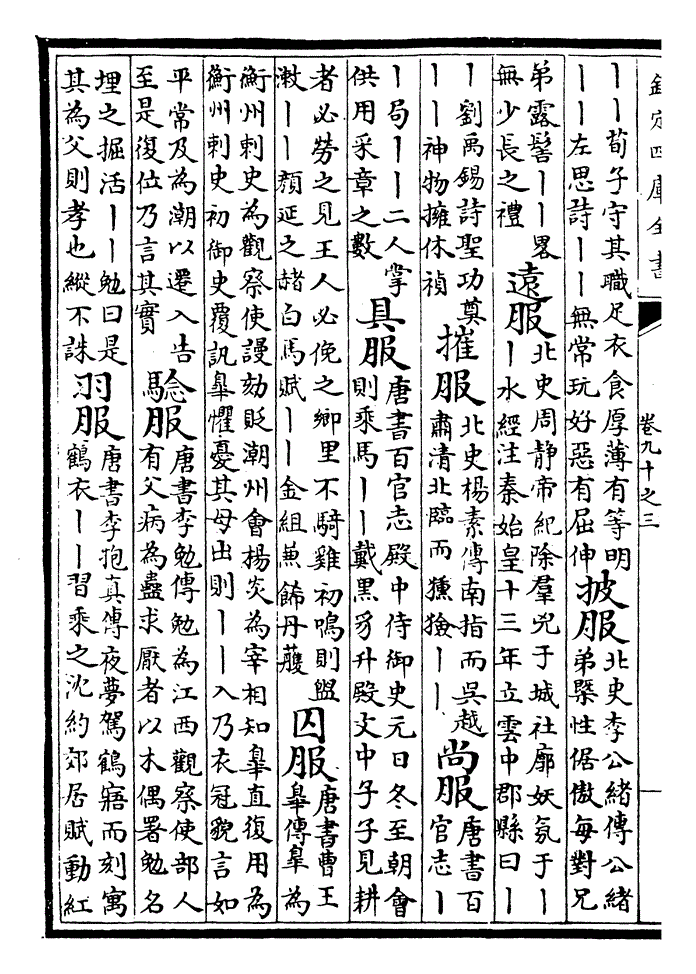 欽定四庫全書
卷九十之三
一
丨丨荀子守其職足衣食厚薄有等明
丨丨左思詩丨丨無常玩好惡有屈伸
披服
北史李公緒傳公緒
弟槩性倨傲每對兄
弟露髻丨丨畧
無少長之禮
遠服
北史周静帝紀除羣兇于城社廓妖氛于丨
丨水經注秦始皇十三年立雲中郡縣曰丨
丨劉禹錫詩聖功奠
丨丨神物擁休禎
摧服
北史楊素傳南指而吳越
肅清北臨而獯獫丨丨
尚服
唐書百
官志丨
丨局丨丨二人掌
供用采章之數
具服
唐書百官志殿中侍御史元日冬至朝會
則乗馬丨丨戴黑豸升殿文中子子見耕
者必勞之見王人必俛之鄉里不騎雞初鳴則盥
漱丨丨顔延之赭白馬賦丨丨金組兼飾丹雘
囚服
唐書曹王
臯傳臯為
衡州刺史為觀察使謾劾貶潮州會楊炎為宰相知臯直復用為
衡州刺史初御史覆訊臯懼憂其母出則丨丨入乃衣冠貌言如
平常及為潮以遷入告
至是復位乃言其實
驗服
唐書李勉傳勉為江西觀察使部人
有父病為蠱求厭者以木偶署勉名
埋之掘活丨丨勉曰是
其為父則孝也縱不誅
羽服
唐書李抱真傳夜夢駕鶴寤而刻寓
鶴衣丨丨習乗之沈約郊居賦動紅